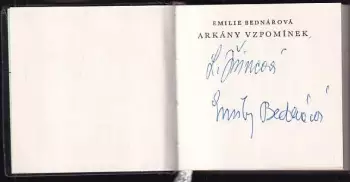 EMILIE BEDNÁROVÁ
ARKÁNY VZPOMÍNEK
L. Jiřincová
Emily Bednárová